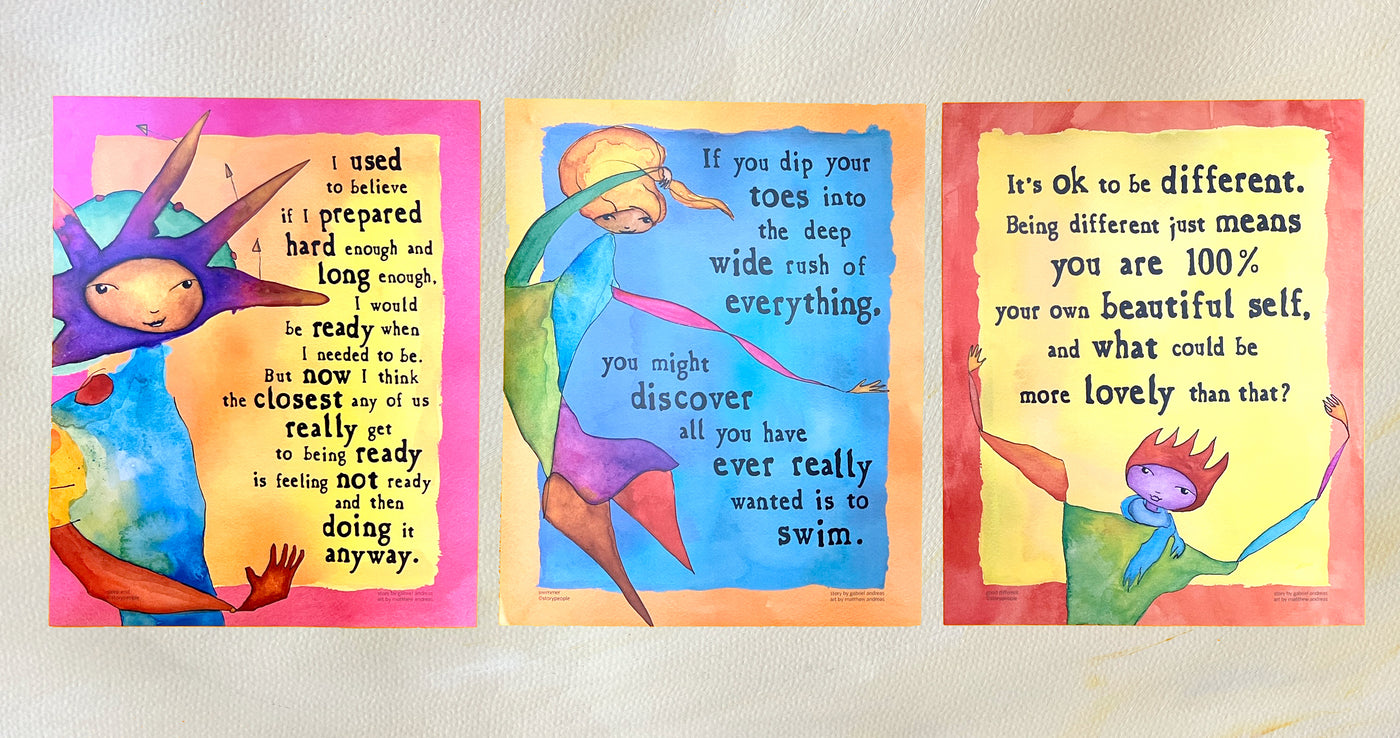 I used
to believe
if I prepared
hard enough and
long enough,
I would
be ready when
I needed to be.
But now I think
the closest any of us
really get
to being ready
is feeling not ready
and then
doing it
anyway.
©storypeople
story by gabriel andreas
art by matthew andreas
If you dip your
toes into
the deep
wide rush of
everything,
you might
discover
all you have
ever really
wanted is to
swim.
swimmer
©storypeople
story by gabriel andreas
art by matthew andreas
It's ok to be different.
Being different just means
you are 100%
your own beautiful self,
and what could be
more lovely than that?
good different
©storypeople
story by gabriel andreas
art by matthew andreas